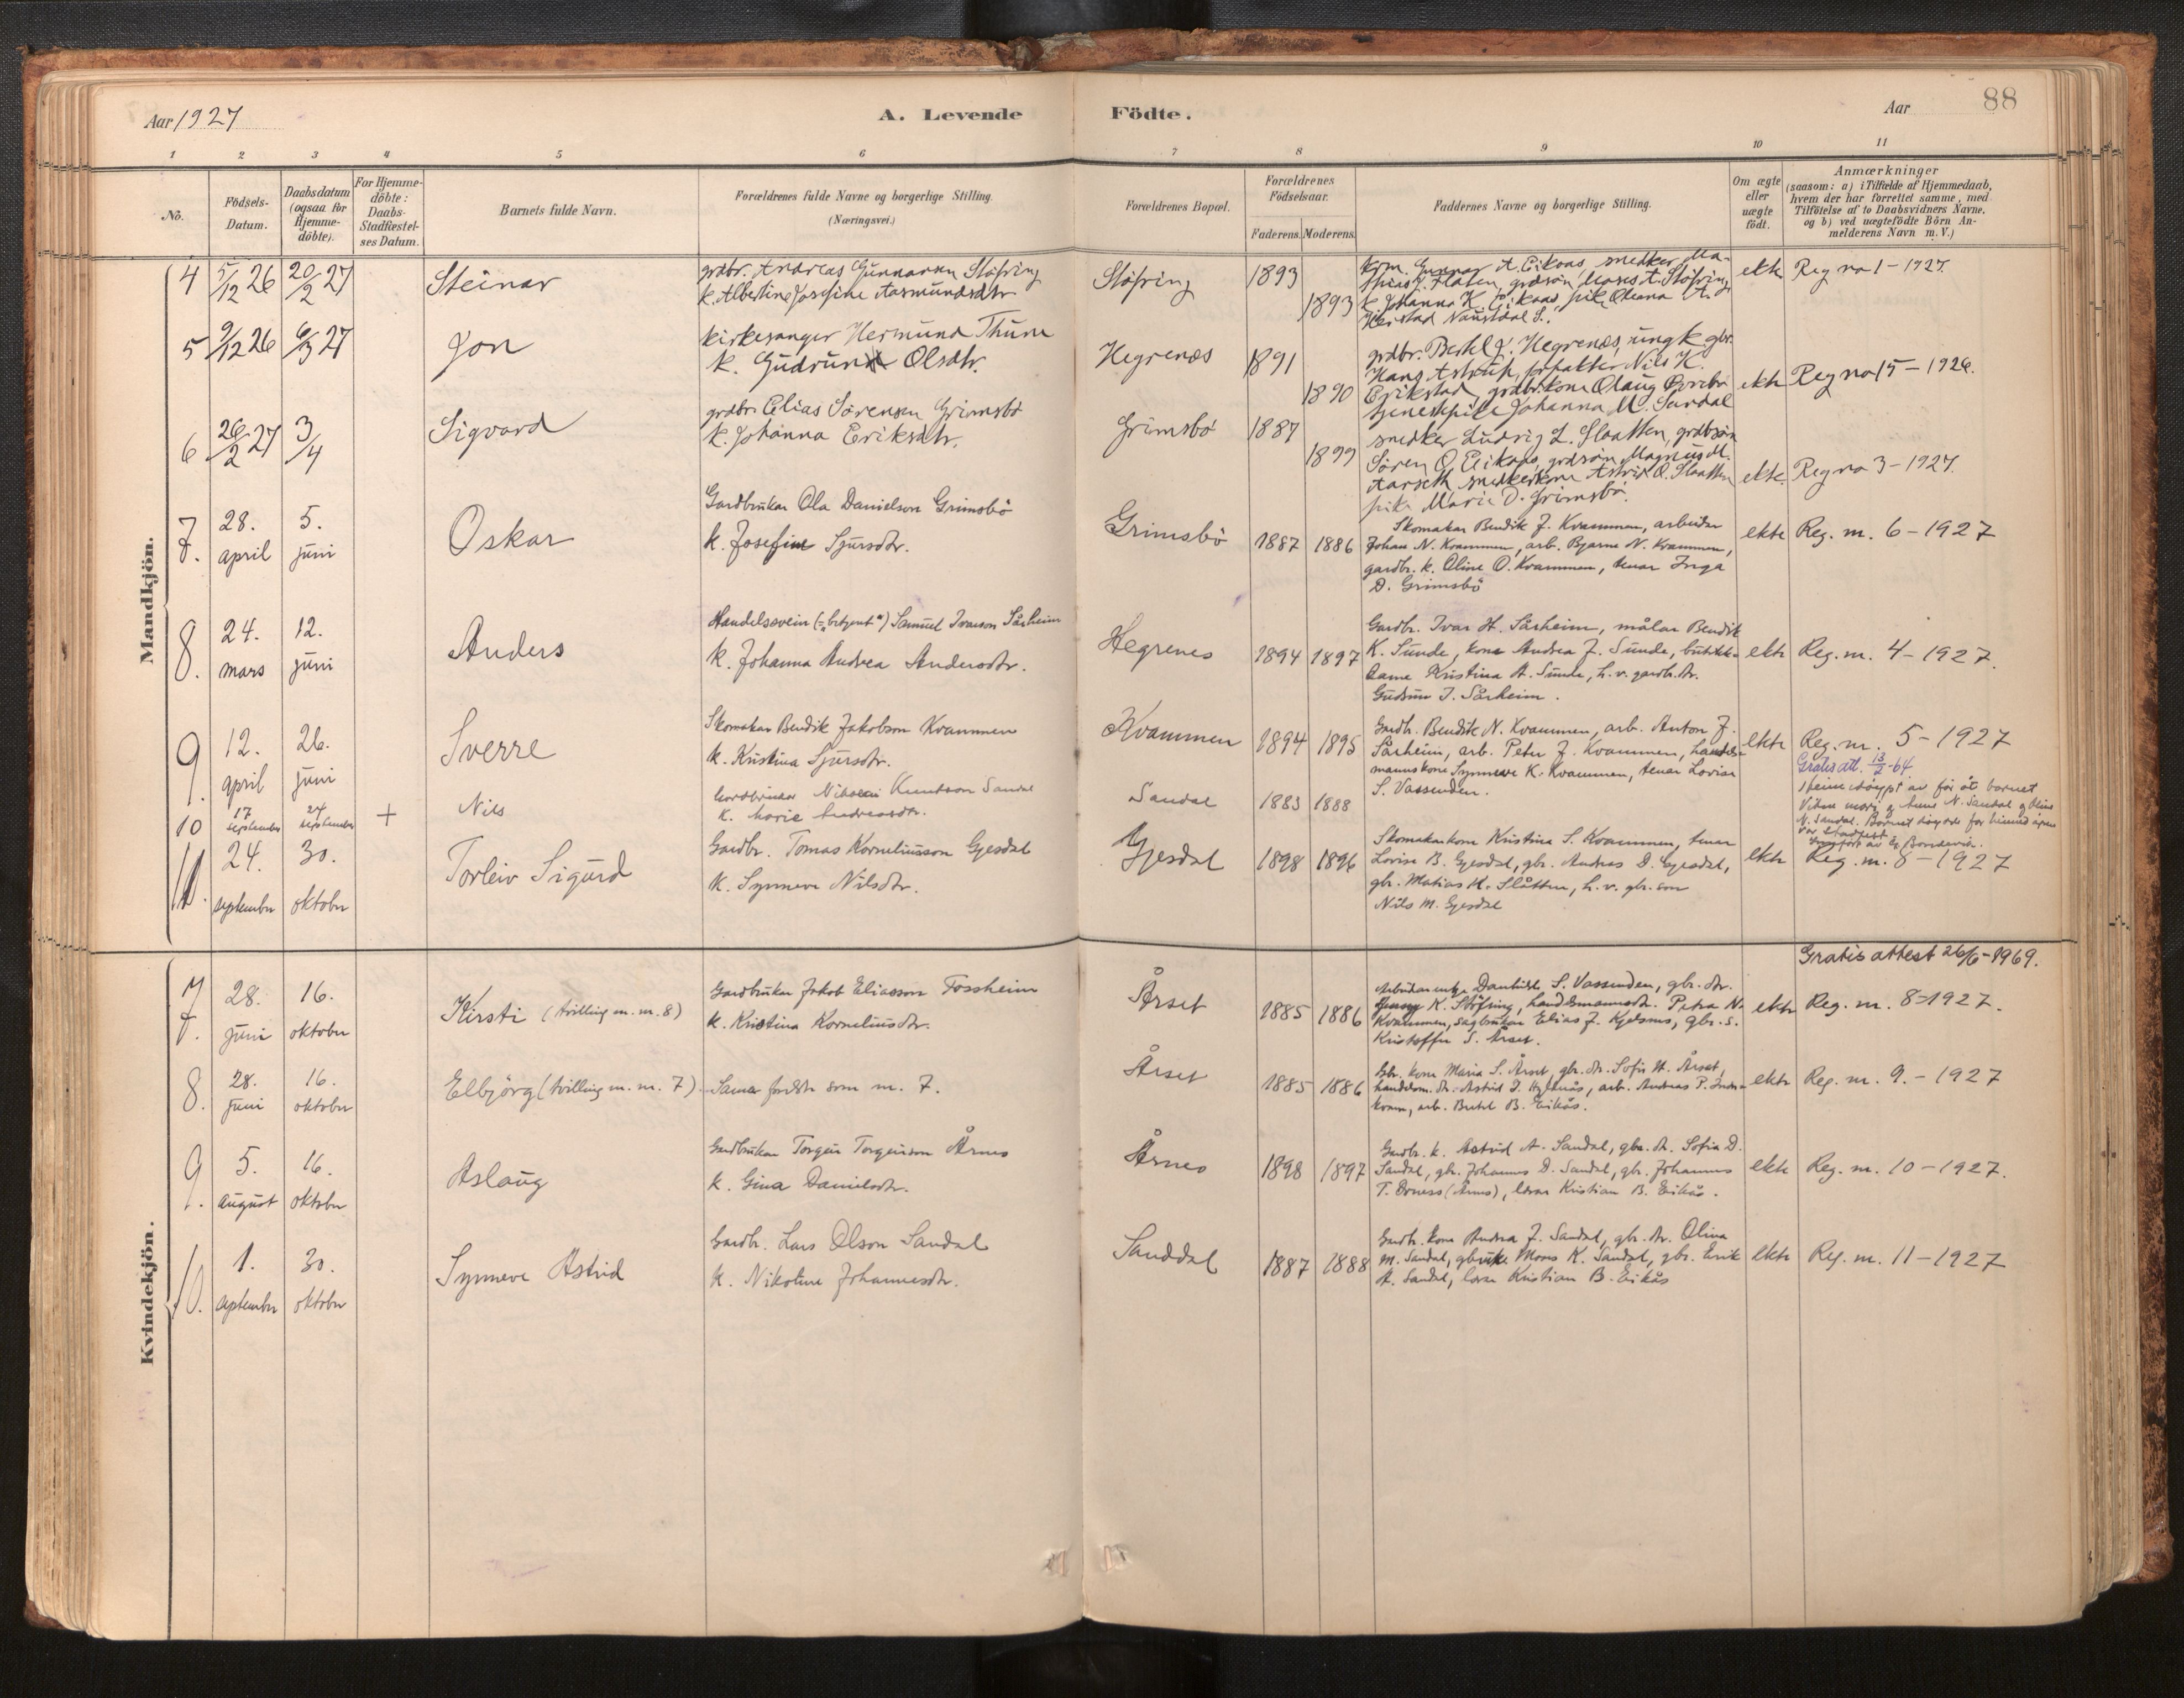 Aar 1927
A. Levende
Födte.
Aar
88
1 2 3 4 5 6 7 8 9 10 11
No.
Födsels-
Datum.
Daabsdatum
(ogsaa for
Hjemme-
döbte).
For Hjemme-
döbte:
Daabs-
Stadfæstel-
ses Datum.
Barnets fulde Navn.
Forældrenes fulde Navne og borgerlige Stilling.
(Næringsvei.)
Forældrenes Bopæl.
Forældrenes
Födselsaar.
Faderens. Moderens.
Faddernes Navne og borgerlige Stilling.
Om ægte
eller
uægte
födt.
Anmærkninger
(saasom: a) i Tilfælde af Hjemmedaab,
hvem der har forrettet samme, med
Tilföielse af to Daabsvidners Navne,
og b) ved uægtefödte Börn An-
melderens Navn m. V.)
Mandkjön.
4 5/12 26 20/2 27 Steinar
grdbr. Andreas Gunnarsen Stöfring
k. Albertine Josefine Aasmundsdtr
Stöfring 1893 1893
krm. Gunnar A. Eikaas, snedker Ma-
thias J. Flaten, grdsön Mons A. Stöfring
k Johanna K. Eikaas, pike Oleana A.
Naustdal S.
ekte Reg no 1 - 1927.
5 9/12 26 6/3 27 Jon
kirkesanger Hermund Thune
k. Gudrun Olsdtr.
Hegrenes 1891 1890
grdbr. Bertel J. Hegrenes, ungk. gbr.
Hans Astrup, Nils K.
Erikstad, grdbr.kone Olaug Övrebö
tjenestpike Johanna M. Sandal
ekte Reg no 15 - 1926.
6 26/2 27 3/4 Sigvard
grdbr. Elias Sörensen Grimsbö
k. Johanna Eriksdtr.
Grimsbö 1887 1899
snedker Ludvig L. Slaatten, grdbsön
Sören O. Eikaas, grdsön Magnus M.
Aarseth, snedkerkone Astrid O. Slaatten
pike Marie D. Grimsbö.
ekte. Reg no 3 - 1927.
7. 28. april 5. juni Oskar
Gardbrukar Ola Danielson Grimsbö
k. Josefine Sjursdtr.
Grimsbö 1887 1886
Skomakar Bendik J. Kvammen, arbeidar
Johan N. Kvammen, arb. Bjarne N. Kvammen,
gardbr. k. Oline O. Kvammen, tenar Inga
D. Grimsbö
ekte Reg. nr. 6 - 1927
8. 24. mars 12. juni Anders
Handelssvein (= „betjent") Samuel Ivarson Sårheim
k. Johanna Andrea Andersdtr.
Hegrenes 1894 1897
Gardbr. Ivar H. Sårheim, målar Bendik
K. Sunde, kone Andrea J. Sunde, butikk-
dame Kristina A. Sunde, h. v. gardb. dtr.
Gudrun I. Sårheim.
ekte Reg. nr. 4 - 1927.
9. 12. april 26. juni Sverre
Skomakar Bendik Jakobson Kvammen
k. Kristina Sjursdtr.
Kvammen 1894 1895
Gardbr. Bendik N. Kvammen, arb. Anton J.
Sårheim, arb. Peter J. Kvammen, handels-
mannskone Synneve K. Kvammen, tenar Lovise
S. Vassenden.
ekte Reg. nr. 5 - 1927
Gratis att. 13/2-64
10 17 september 24 september + Nils
Gardbrukar Nikolai Knutson Sandal
k. Marie Andreasdtr.
Sandal 1883 1888
Heime döypt av far åt barnet
Vitne mori og Anne N. Sandal og Oline
N. Sandal. Barnet döydde för heimedåpen
var stadfest
Innført av E. Bondevik.
11. 24. september 30. oktober Torleiv Sigurd
Gardbr. Tomas Korneliusson Gjesdal
k. Synneve Nilsdtr.
Gjesdal 1898 1896
Skomakarkone Kristina S. Kvammen, tenar
Lovise B. Gjesdal, gbr. Andreas D. Gjesdal,
gbr. Matias K. Slåtten, h. v. gbr. son
Nils M. Gjesdal
ekte Reg. nr. 8 - 1927
Kvindekjön.
Gratis attest 26/6-1969.
7. 28. juni 16. oktober Kirsti (tvilling m. nr. 8)
Gardbrukar Jakob Eliasson Fossheim
k. Kristina Korneliusdtr.
Årset 1885 1886
S. Vassenden, gbr. dtr.
Jenny K. Stöfring, handelsmannsdtr. Petra N.
Kvammen, sagbrukar Elias J. Kjelsnes, gbr. s.
Kristoffer S. Årset.
ekte Reg. nr. 8 - 1927.
8. 28. juni 16. oktober Elbjörg (tvilling m. nr. 7)
Same foreldre som nr. 7.
Årset 1885 1886
Gbr. kone Maria S. Årset, gbr. dtr. Sofie H. Årset,
handelsm. dtr. Astrid J. arb. Andreas P. Indre-
kvam, arb. Bertel B. Eikås.
ekte Reg. nr. 9. - 1927
9. 5. august 16. oktober Aslaug
Gardbrukar Torgeir Torgeirson Årnes
k. Gina Danielsdtr.
Årnes 1898 1897
Gardbr. k. Astrid A. Sandal, gbr. dtr. Sofia D.
Sandal, gbr. Johannes D. Sandal, gbr. Johannes
T. (Årnes), lærar Kristian B. Eikås.
ekte Reg. nr. 10 - 1927.
10. 1. september 30. oktober Synneve Astrid
Gardbr. Lars Olson Sandal
k. Nikoline Johannesdtr.
Sanddal 1887 1888
Gardbr. kone Andrea J. Sandal, gbr. dtr. Olina
M. Sandal, Mons K. Sandal, gbr. Erik
A. Sandal, lærar Kristian B. Eikås
ekte Reg. nr. 11 - 1927